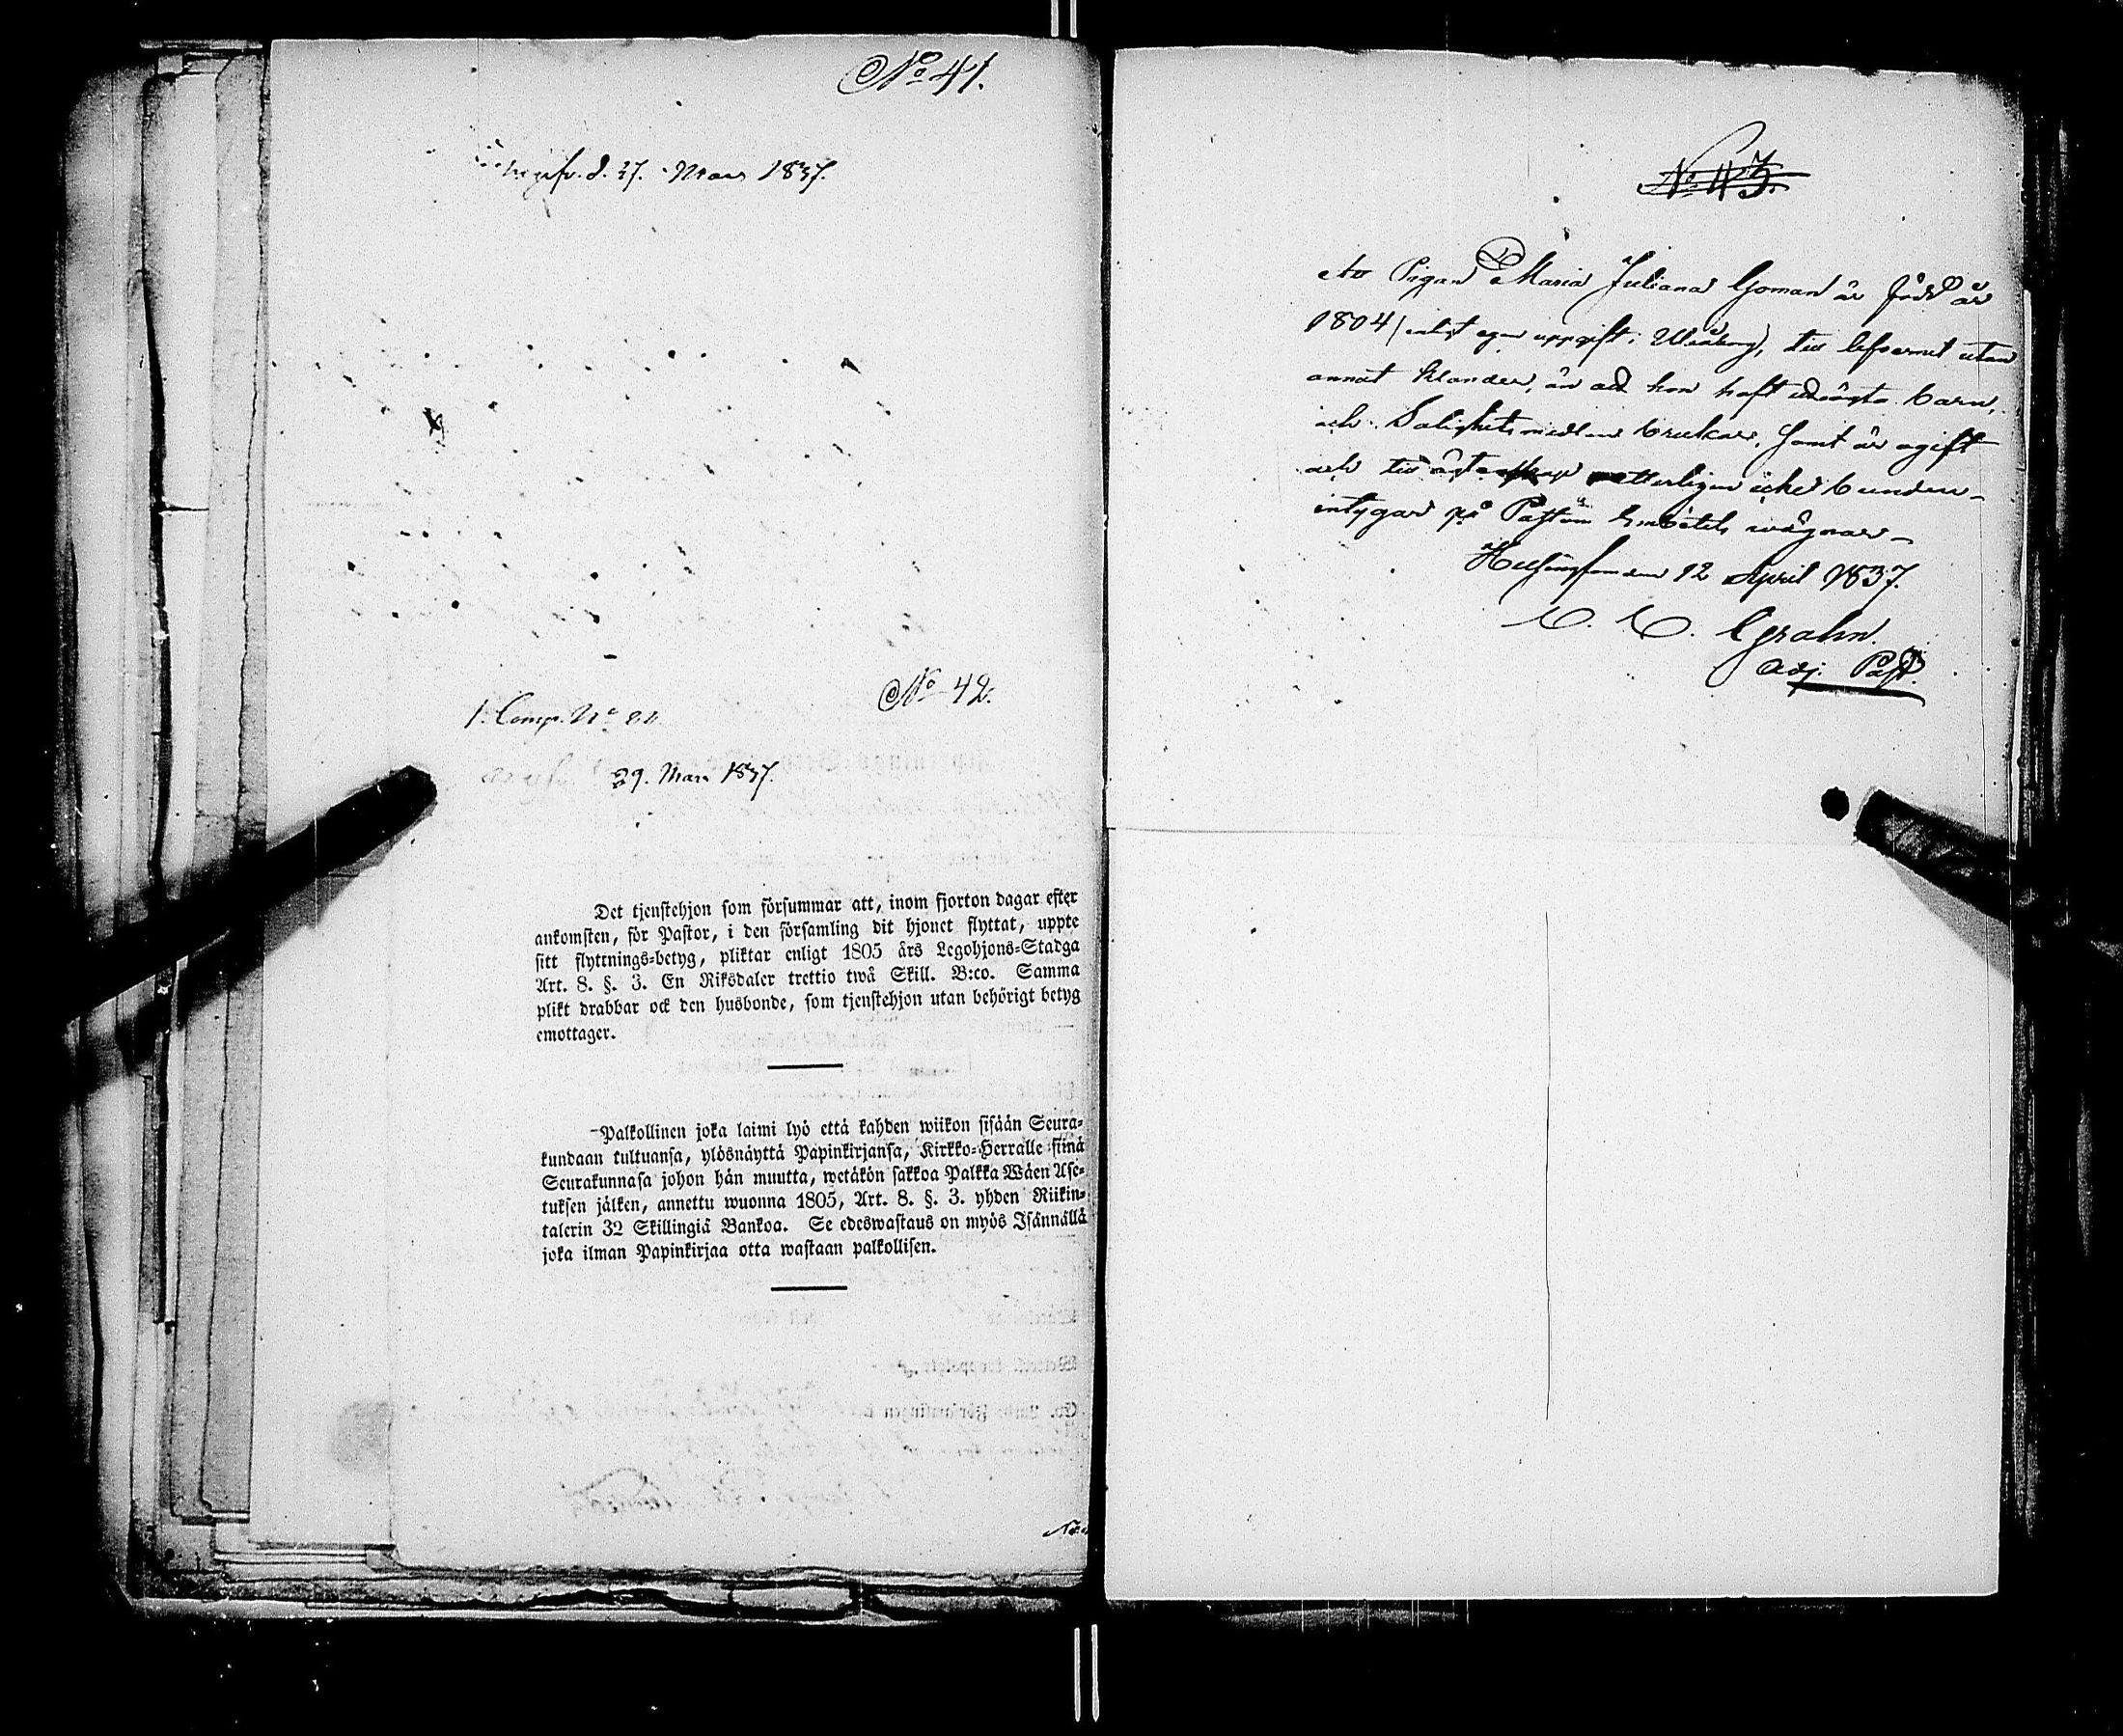 No 41.
d. 27. Mars 1837.
No 42.
1. Comp. No
29. Mars 1837.
Det tjenstehjon som försummar att, inom fjorton dagar efter
ankomsten, för Pastor, i den församling dit hjonet flyttat, uppte
sitt flyttnings-betyg, pliktar enligt 1805 års Legohjons-Stadga
Art. 8. §. 3. En Riksdaler trettio twå Skill. B:co. Samma
plikt drabbar ock den husbonde, som tjenstehjon utan behörigt betyg
emottager.
Palkollinen joka laimi lyö että kahden wiikon sisään Seura-
kundaan tultuansa, ylösnäyttä Papinkirjansa, Kirkko-Herralle siinä
Seurakunnasa johon hän muutta, wetäkön sakkoa Palkka Wäen Ase-
tuksen jälken, annettu wuonna 1805, Art. 8. §. 3. yhden Riikin-
talerin 32 Skillingiä Bankoa. Se edeswastaus on myös Isännällä
joka ilman Papinkirjaa otta wastaan palkollisen.
No 43.
Att Pigan Maria Juliana Goman är född år
1804 (enligt egen uppgift i Uleåborg), till lefvernet utan
annat klander, än att hon haft oäkta barn,
och Salighetsmedlen brukar, samt är ogift
och till ägtenskap wetterligen icke bunden -
intygar på Pastors Embetets wägnar -
Helsingfors den 12 April 1837.
C. C. Grahn.
Adj. Past.